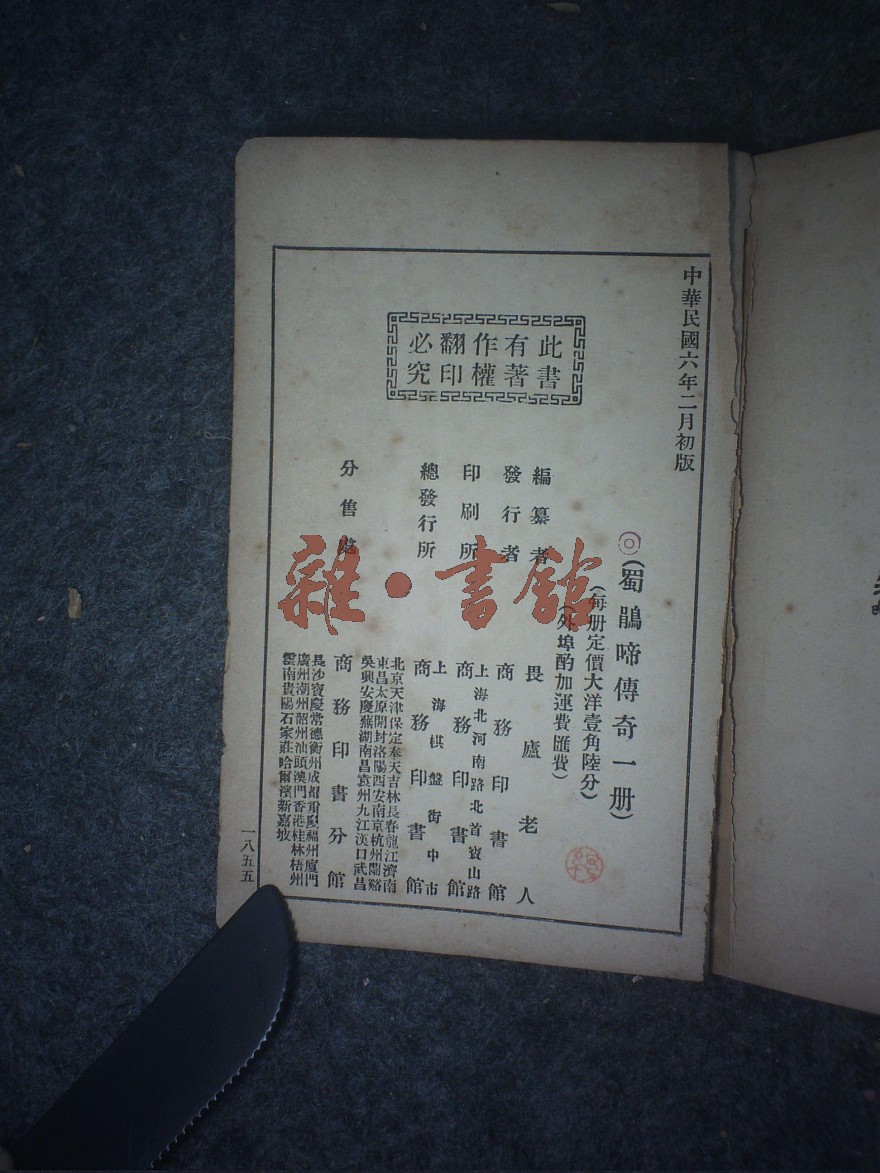 中華民國六年二月初版
此書
有著
作權
翻印
必究
◎(蜀鵑啼傳奇一册)
(每册定價大洋壹角陸分)
(外埠酌加運費匯費)
編纂者 畏廬老人
發行者 商務印書館
印刷所 上海北河南路北首寶山路
商務印書館
總發行所 上海棋盤街中市
商務印書館
分售處
北京天津保定奉天吉林長春龍江濟南
東昌太原開封洛陽西安南京杭州蘭谿
吳興安慶蕪湖南昌袁州九江漢口武昌
商務印書分館
長沙寶慶常德衡州成都重慶福州廈門
廣州潮州韶州汕頭澳門香港桂林梧州
雲南貴陽石家莊哈爾濱新嘉坡
一八五五
雜·書館